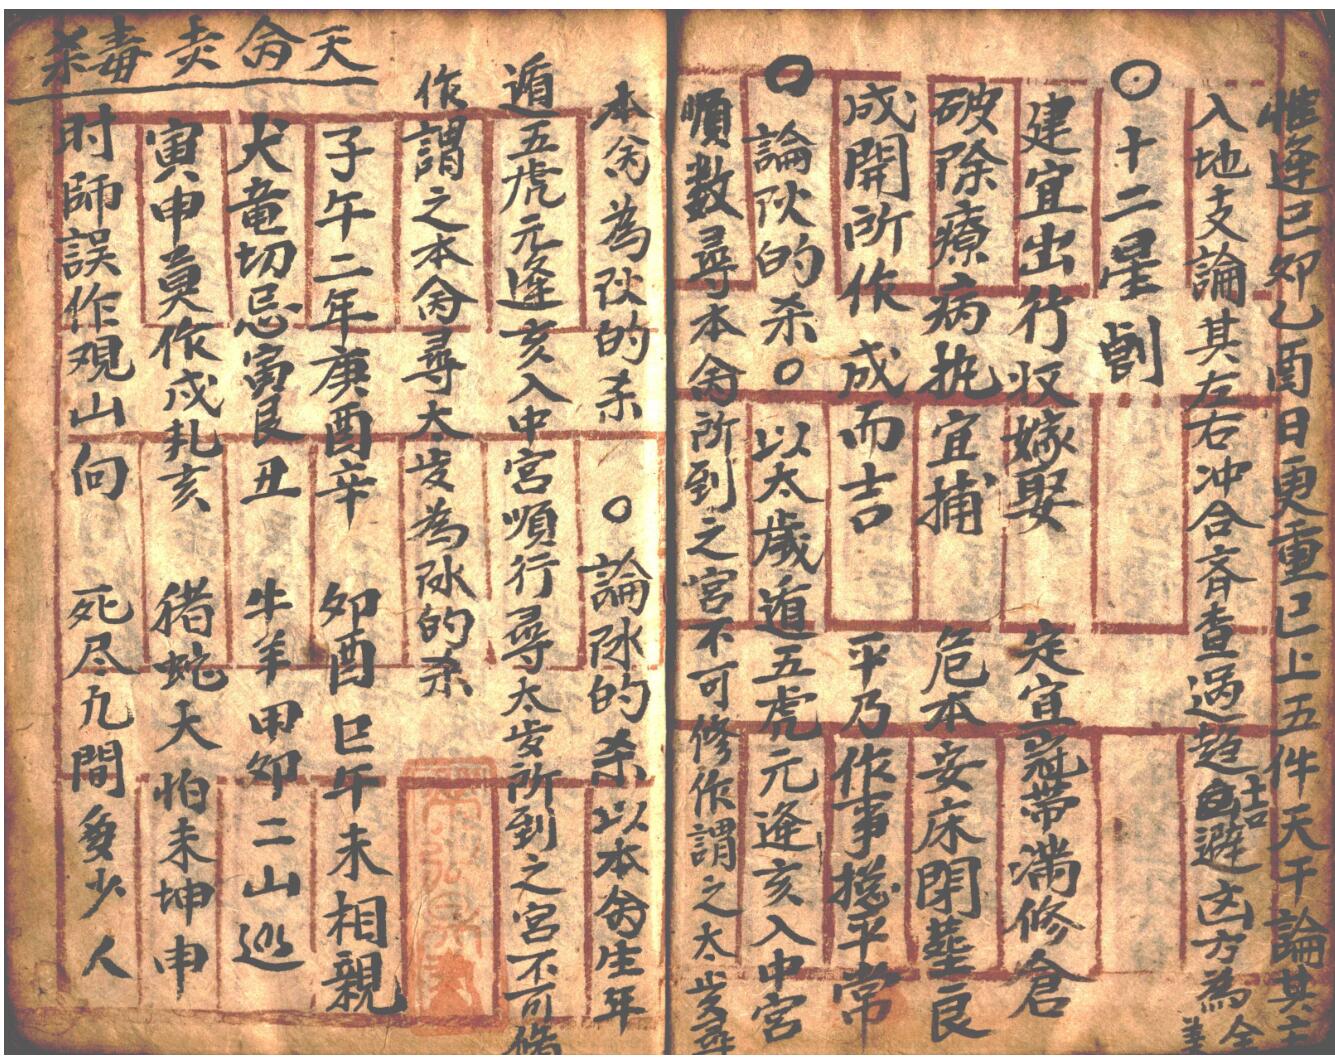 惟逢己卯乙酉日更重已上五件天干論其主
入地支論其左右冲合斉查过趋吉避凶方為全美
十二星剖
建宜出行収嫁娶 定宜冠帯满修倉
破除療病执宜捕 危本安床閉塟良
成開所作成而吉 平乃作事揔平常
論㕮的杀○以太歲遁五虎元逢亥入中宮
順数尋本侖所到之宮不可修作謂之太岁尋
本侖為㕮的杀 ○論㕮的杀以本侖生年
遁五虎元逢亥入中宮順行尋太岁所到之宮不可修
作謂之本侖尋太岁為㕮的杀
天侖 毒杀
子午二年庚酉辛 卯酉巳午未相親
犬竜切忌寅艮丑 牛羊甲卯二山巡
寅申莫作戍乹亥 猪蛇大怕未坤申
时師誤作观山向 死尽九間多少人